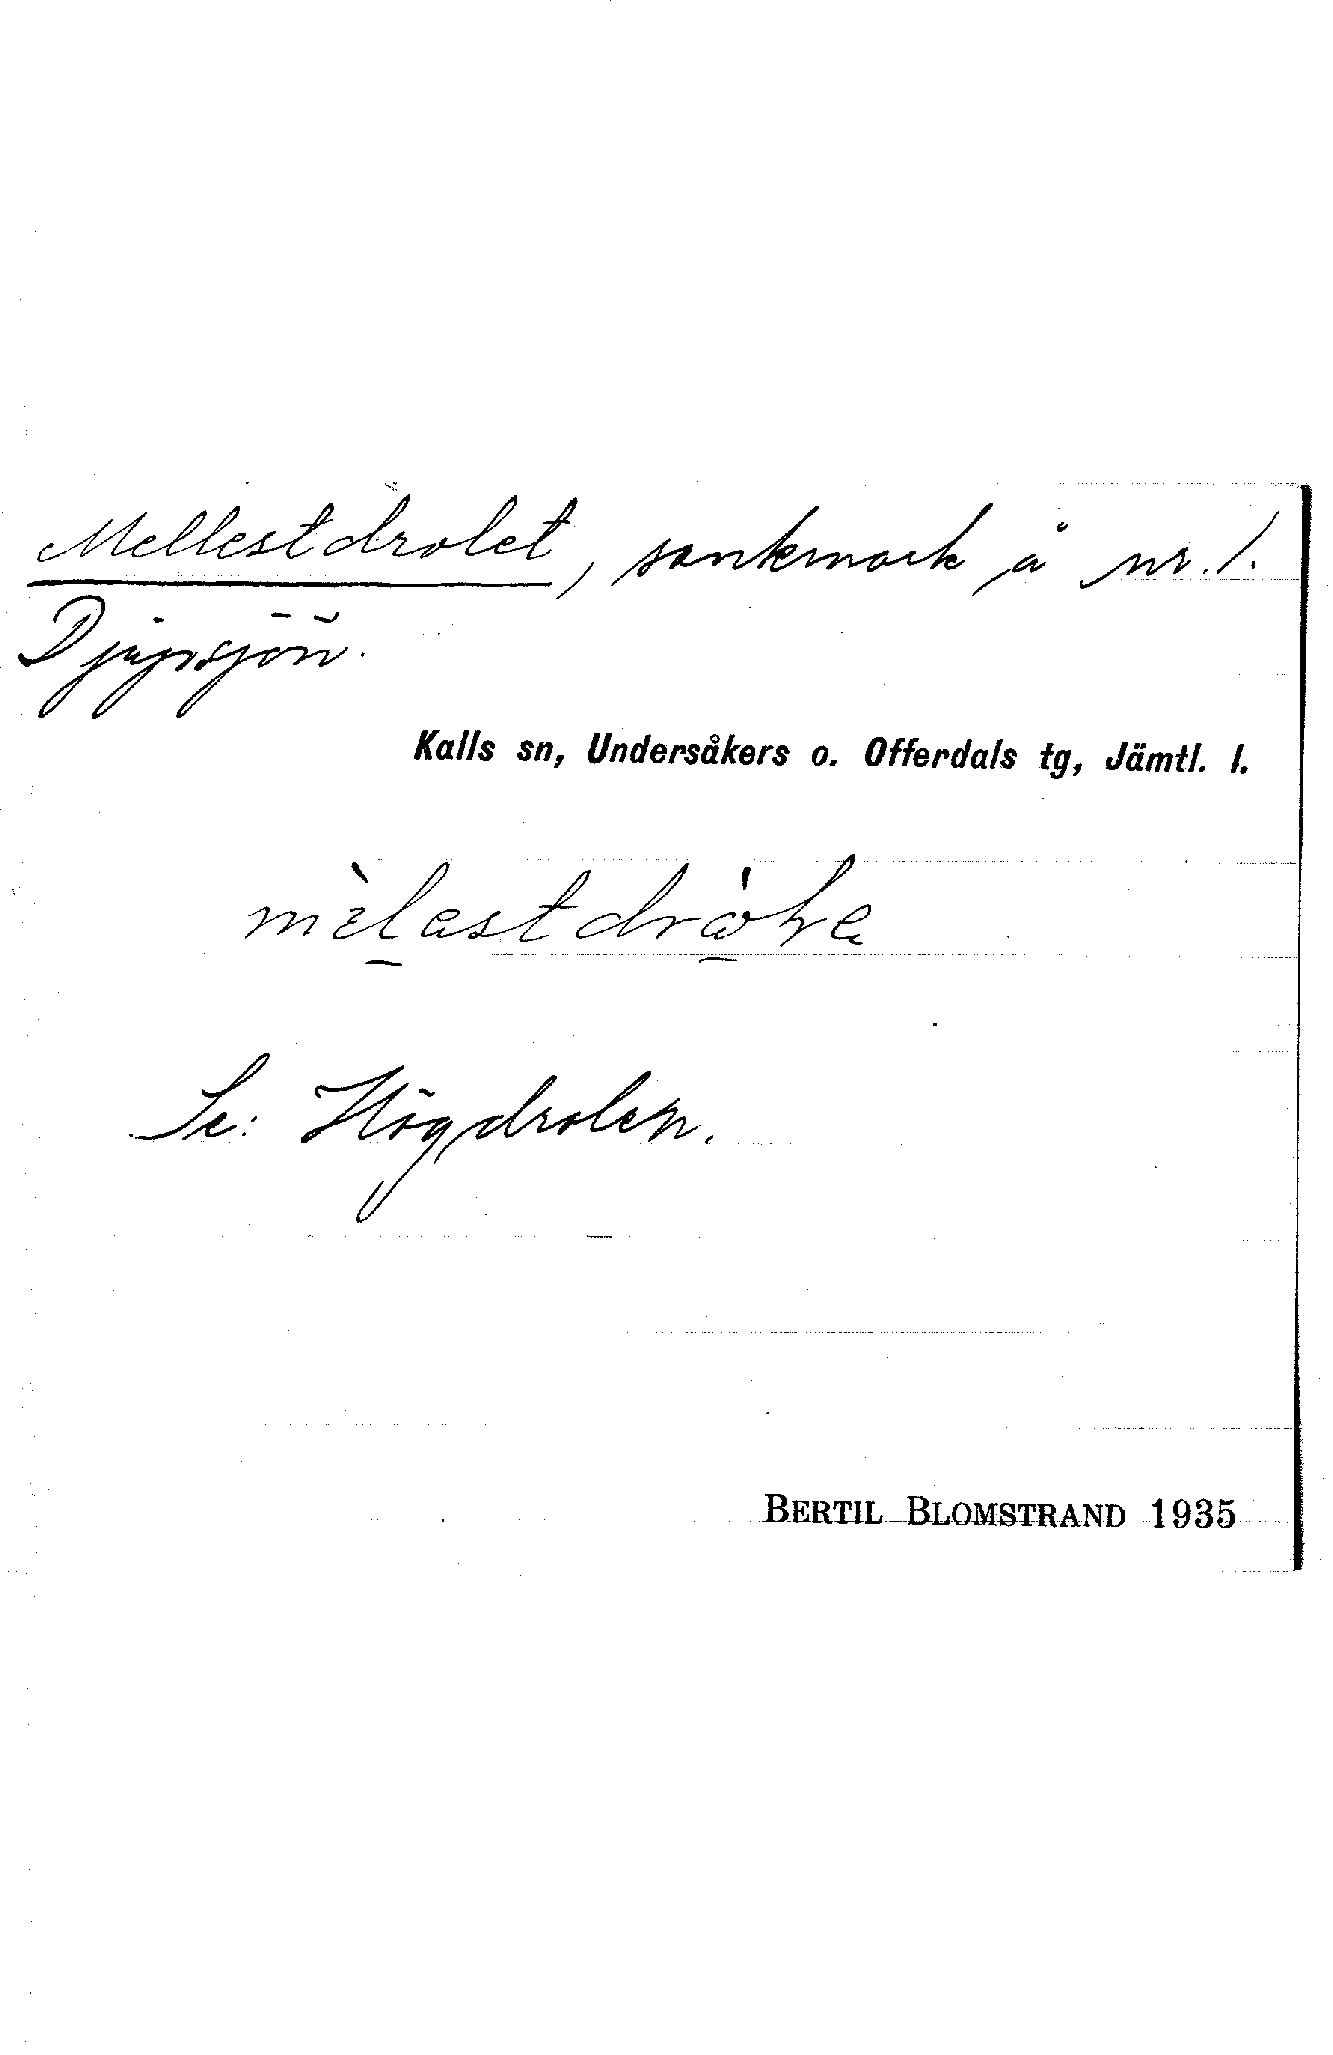 Mellestdrolet, sankmark å nr. 1.
Djupsjön.
Kalls sn, Undersåkers o. Offerdals tg, Jämtl. l.
Se: Högdrolen.
BERTIL BLOMSTRAND 1935